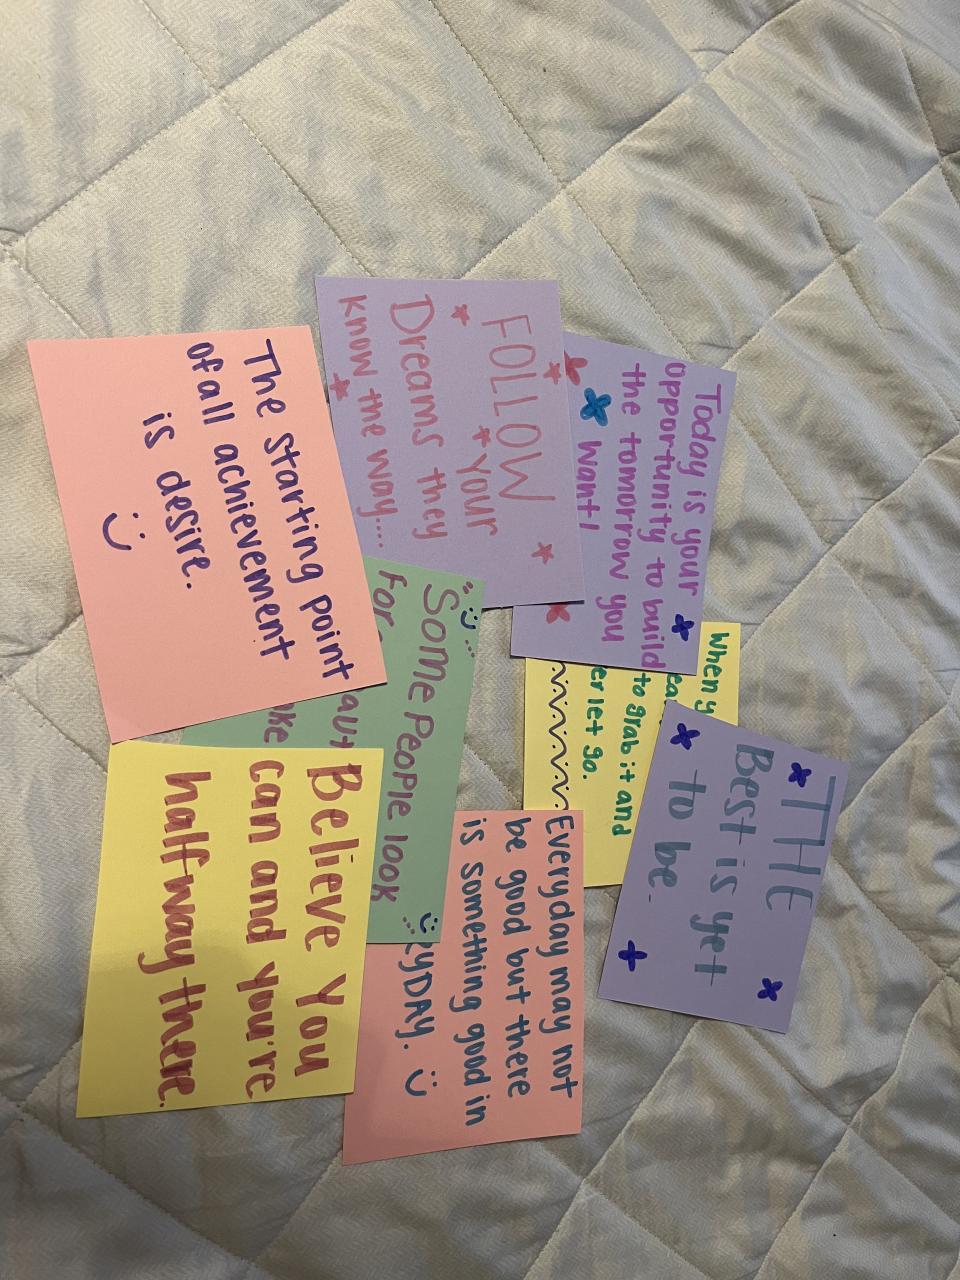 Today is your
opportunity to build
the tomorrow you
want!
FOLLOW
your
Dreams they
know the way...
The starting point
of all achievement
is desire.
When
to grab it and
let go.
THE
Best is yet
to be.
SOME PEOPLE look
for
Everyday may not
be good but there
is something good in
DAY.
Believe You
can and you're
halfway there.